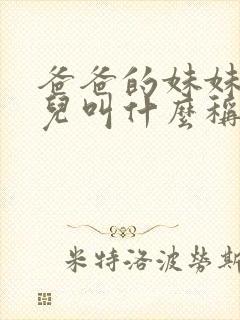 爸爸的妹妹
兒叫什麼稱
米特洛波勞斯